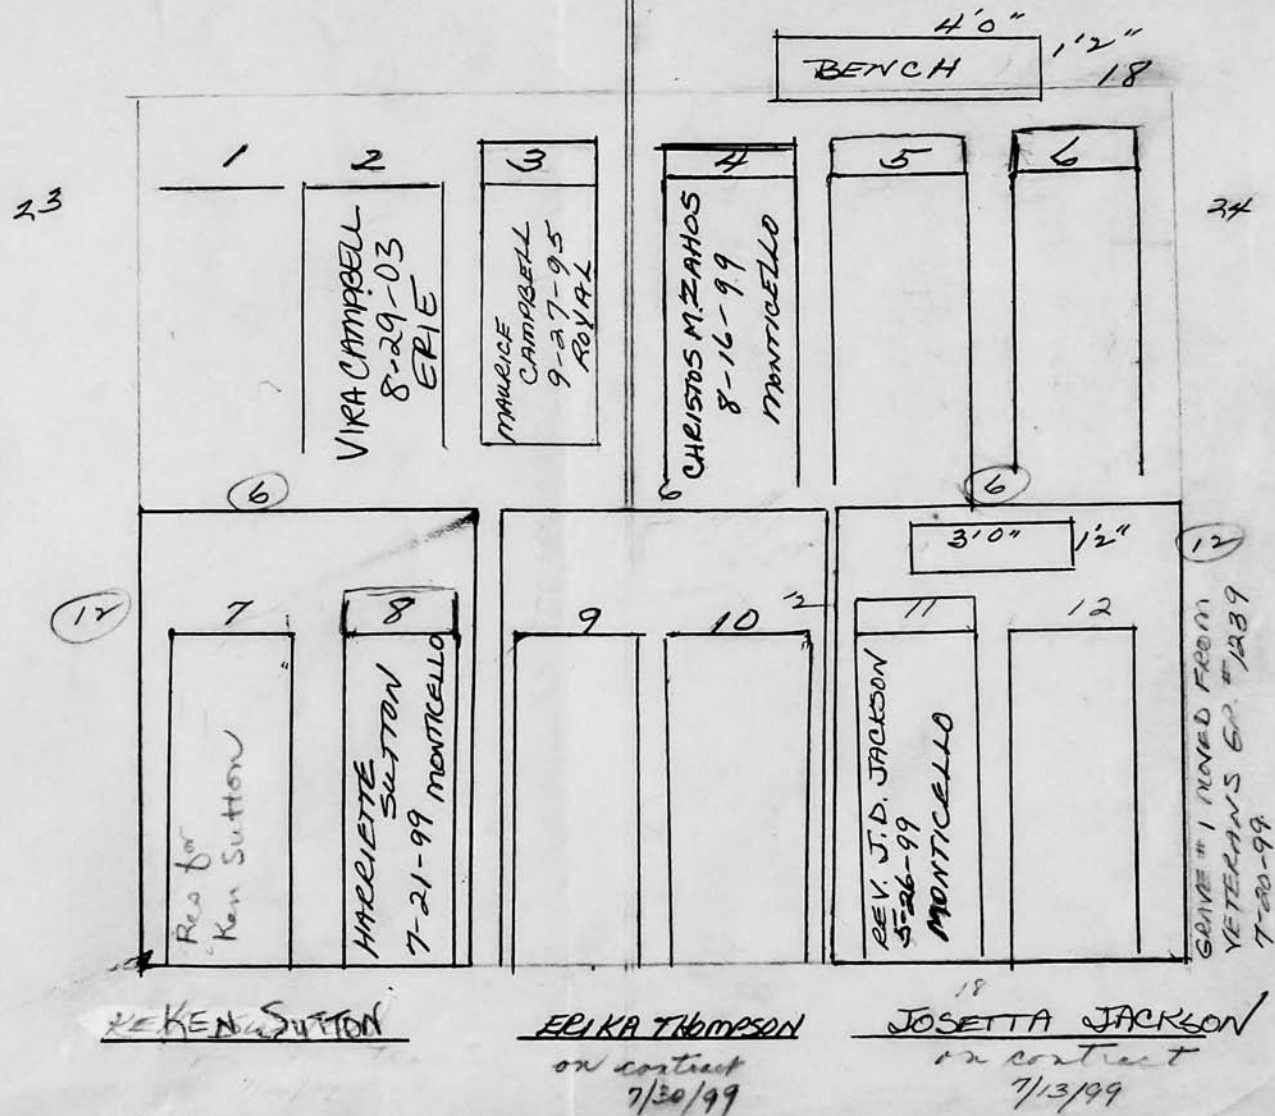 4'0"
BENCH
1'2"
18
23
1
2
3
4
5
6
24
VIRA CAMPBELL
8-29-03
ERIE
MAURICE
CAMPBELL
9-27-95
ROYAL
CHRISTOS M. ZAHOS
8-16-99
MONTICELLO
6
6
6
12
3'0"
1'2"
12
7
8
9
10
12
11
12
Res for
Ken Sutton
HARRIETTE
SUTTON
7-21-99 MONTICELLO
REV. J.D. JACKSON
5-26-99
MONTICELLO
GRAVE #1 MOVED FROM
VETERANS GP. #1239
7-20-99
KEN SUTTON
ERIKA THOMPSON
on contract
7/30/99
18
JOSETTA JACKSON
on contract
7/13/99